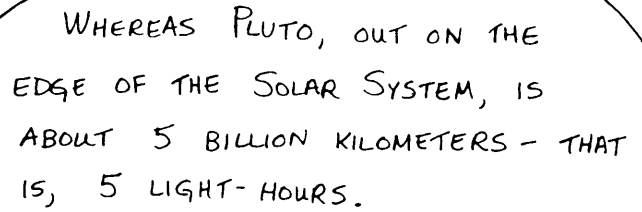 WHEREAS PLUTO, OUT ON THE
EDGE OF THE SOLAR SYSTEM, IS
ABOUT 5 BILLION KILOMETERS - THAT
IS, 5 LIGHT-HOURS.